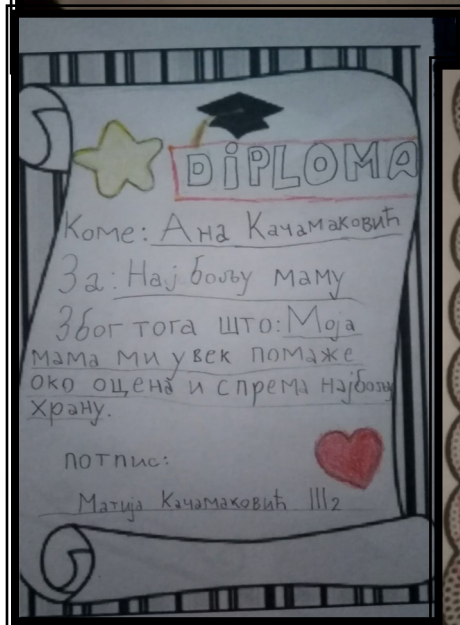 DiPLOMA
Коме: Ана Качамаковић
За: Нај бољу маму
Због тога што: Моја
мама ми увек помаже
око оцена и спрема најбољу
храну.
потпис:
Матија Качамаковић III2